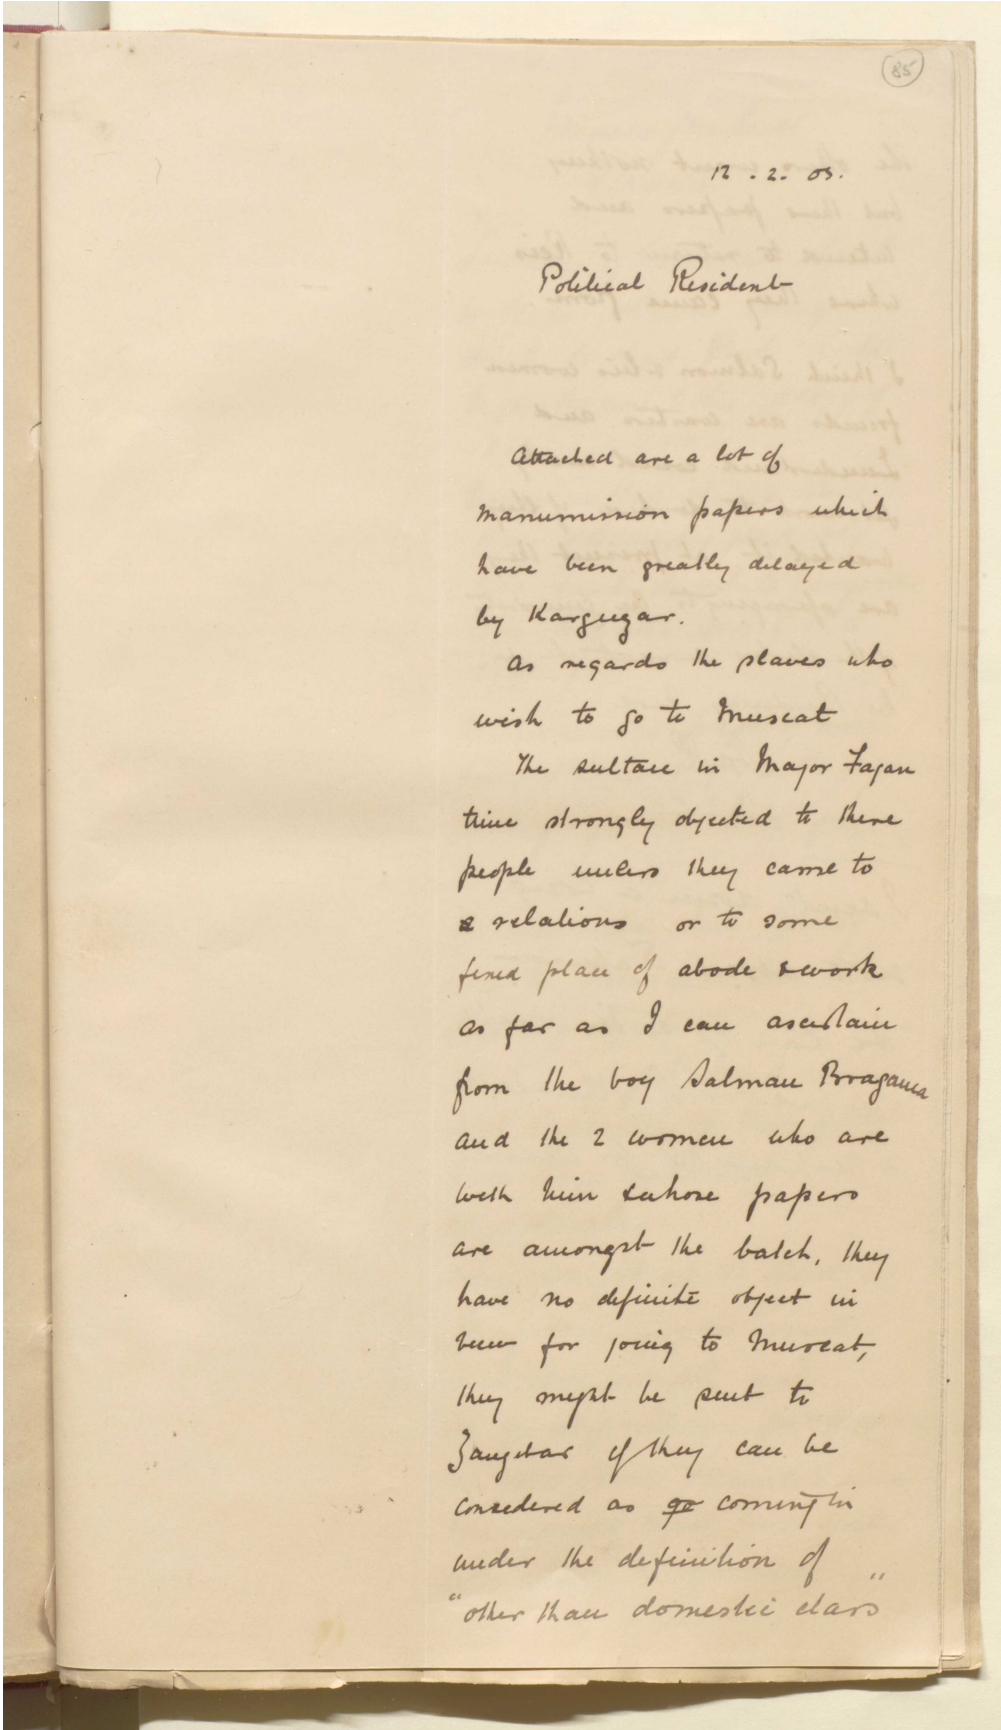 85
12 . 2. 05.
Political Resident
Attached are a lot of
manumission papers which
have been greatly delayed
by Karguzar.
As regards the slaves who
wish to go to Muscat
The sultan in Major Fagan
time strongly objected to these
people unless they came to
relations or to some
fixed place of abode & work
as far as I can ascertain
from the boy Salman
and the 2 women who are
with him & whose papers
are amongst the batch, they
have no definite object in
view for going to Muscat,
they might be sent to
Zangibar if they can be
considered as go coming in
under the definition of
"other than domestic class"